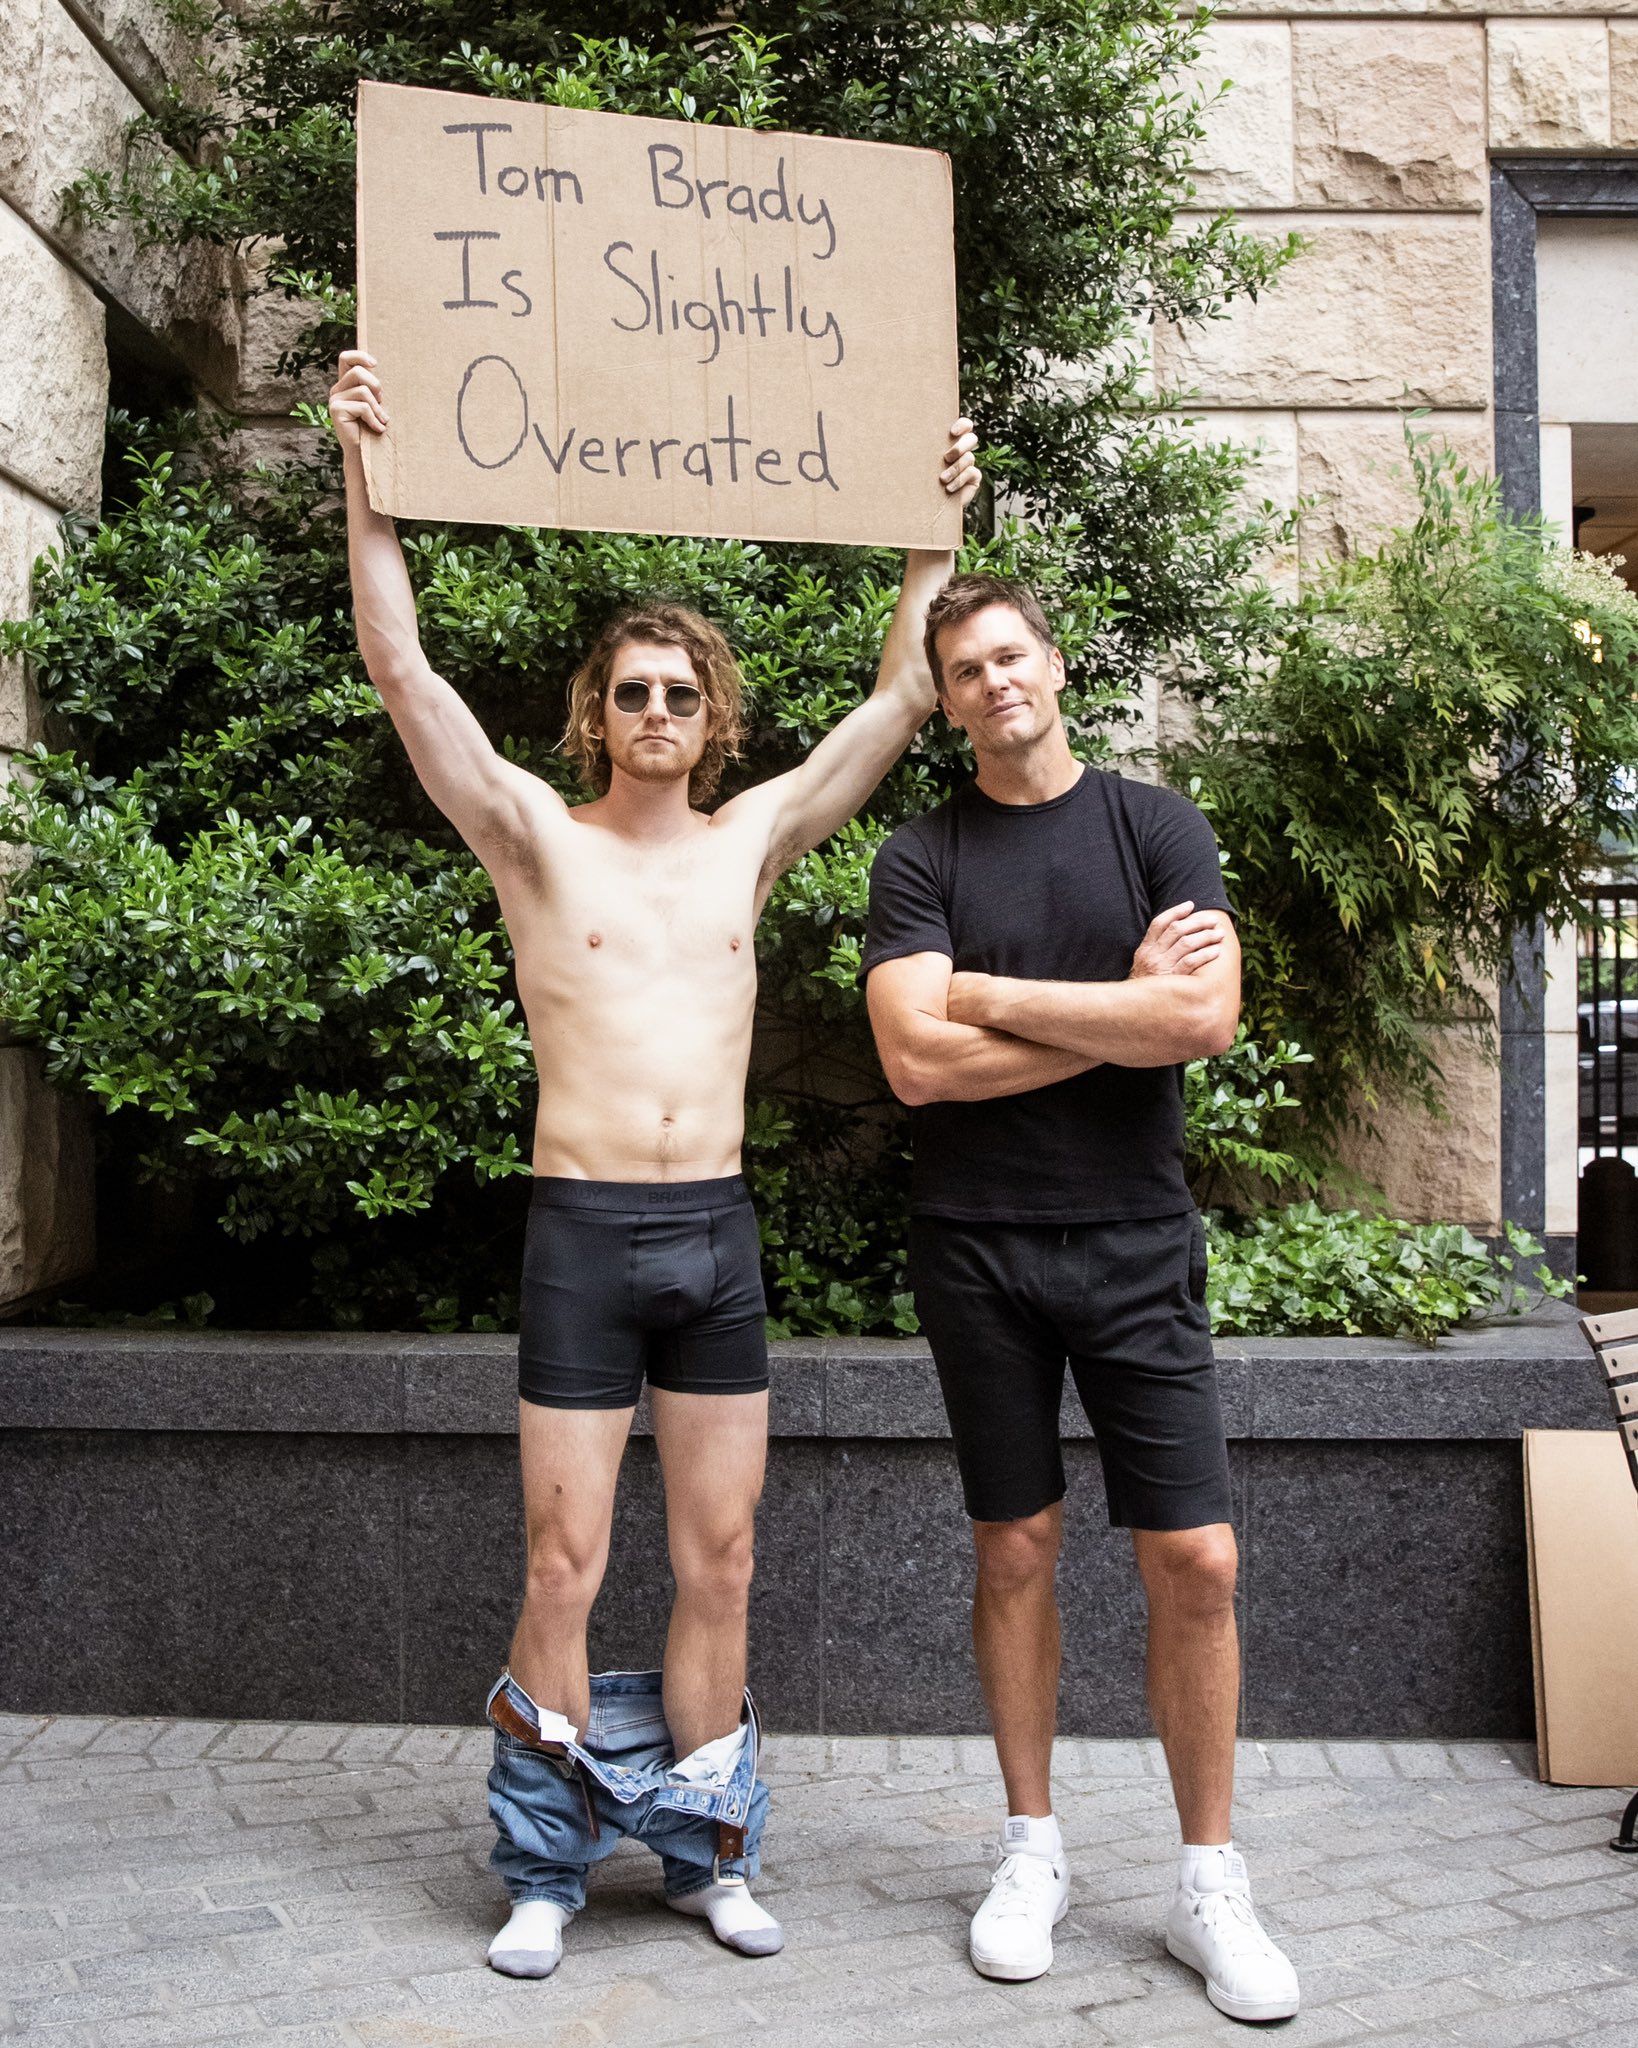 Tom Brady
Is Slightly
Overrated
BRADY BRADY